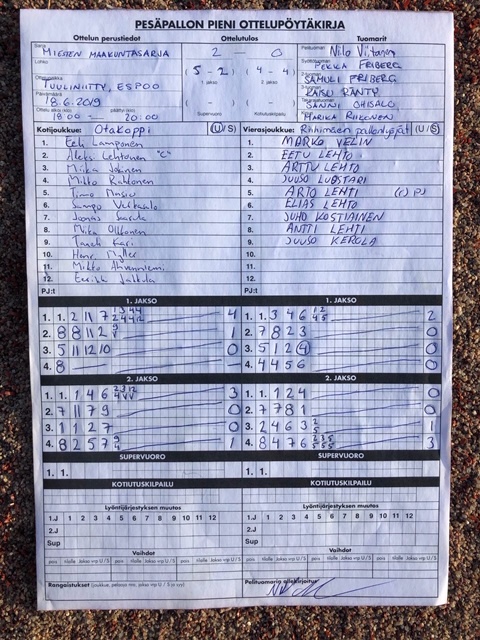 PESÄPALLON PIENI OTTELUPÖYTÄKIRJA
Ottelun perustiedot Ottelutulos Tuomarit
Sarja MIESTEN MAAKUNTASARJA 2 – 0
Pelituomari Nilo Viitanen
Lohko
(5 - 2) (4 - 4)
1. jakso 2. jakso
PEKKA FRIBERG
SAMULI FRIBERG
Ottelupaikka TUULINIITTY, ESPOO
KAISU RÄNTY
Päivämäärä 18.6.2019
SANNI OHISALO
Ottelu alkoi (klo) päättyi (klo)
18:00 – 20:00
Supervuoro Kotiutuskilpailu
MARIKA RIIKONEN
Kotijoukkue: Otakoppi (U/S) Vierasjoukkue: Riihimäen pallonlyöjät (U/S)
1. Eeli Lamponen 1. MARKO VELIN
2. Aleksi Lehtonen "C" 2. EETU LEHTO
3. Miika Jokinen 3. ARTTU LEHTO
4. Mikko Rahkonen 4. JUUSO LUOSTARI
5. Timo 5. ARTO LEHTI (C) PJ
6. Sampo Valkasalo 6. ELIAS LEHTO
7. Joonas 7. JUHO KOSTIAINEN
8. Mika Ollikonen 8. ANTTI LEHTI
9. Taneli Kari 9. JUUSO KEROLA
10. Henri Myller 10.
11. Mikko Ahvenniemi 11.
12. Eerikki Jalkala 12.
PJ:t PJ:t
1. JAKSO 1. JAKSO
1. 1. 2 11 7 4 1. 1. 3 4 6 2
2. 8 8 11 2 1 2. 7 8 2 3 0
3. 5 11 12 10 0 3. 5 1 2 4 0
4. 8 4. 4 4 5 6 0
2. JAKSO 2. JAKSO
1. 1. 1 4 6 3 1. 1. 1 2 4 0
2. 7 11 7 9 0 2. 7 7 8 1 0
3. 1 1 2 7 0 3. 2 4 6 3 1
4. 8 2 5 7 1 4. 8 4 7 6 3
SUPERVUORO SUPERVUORO
1. 1. 1. 1.
KOTIUTUSKILPAILU KOTIUTUSKILPAILU
Lyöntijärjestyksen muutos Lyöntijärjestyksen muutos
1.J 1 2 3 4 5 6 7 8 9 10 11 12 1 2 3 4 5 6 7 8 9 10 11 12
2.J
Sup
Vaihdot Vaihdot
pois tilalle Jakso vrp U / S pois tilalle Jakso vrp U / S pois tilalle Jakso vrp U / S pois tilalle Jakso vrp U / S
Rangaistukset (joukkue, pelaaja nro, jakso vrp, U / S ja syy) Pelituomarin allekirjoitus